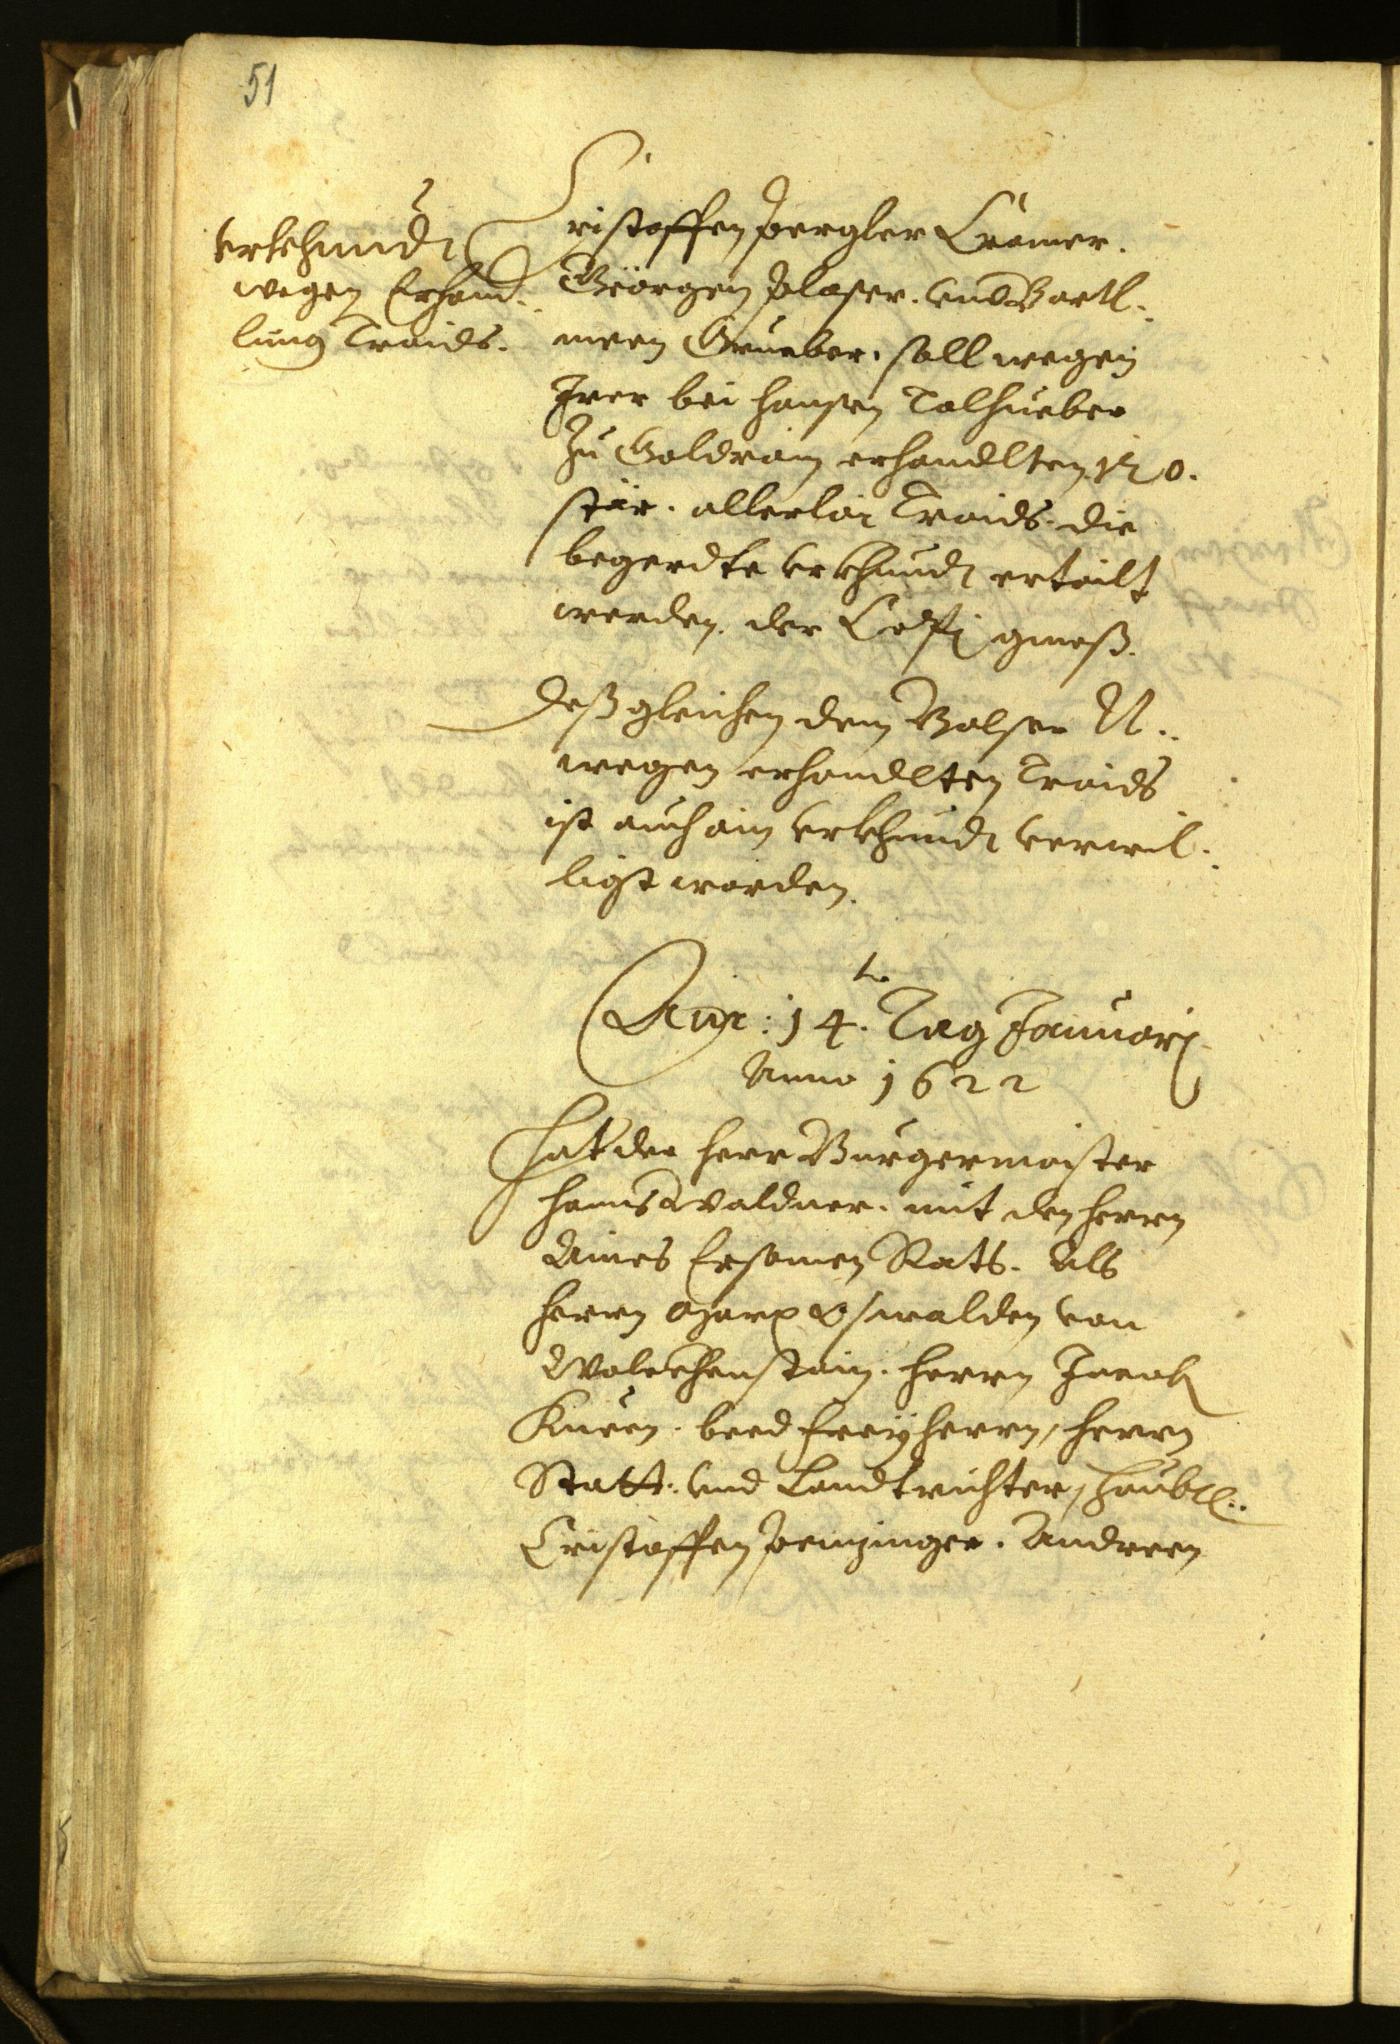 51
vrkhundt
wegen Erhand-
lung Traids.
Cristoffen Pergler Cramer.
Geörgen Plaser. vnd Bartl-
meen Grueber. soll wegen
Irer bei Hansen Talhueber
Zu Goldrain erhandlten 120.
stär. allerlai Traids. die
begerdte vrkhundt ertailt
werden. der gmeß.
Deßgleichen dem Balser N..
wegen erhandlten Traids
ist auch ain vrkhundt verwil-
ligt worden.
Am: 14.te Tag Januarj
Anno 1622
Hat der Herr Burgermaister
Hanns Waldner. mit den Herrn
Aines Ersamen Rats. Als
Herrn Marx Oswalden von
Wolckhenstain. Herrn Jacob
Kuen. beed Freyherrn, Herrn
Statt: vnd Landtrichter,
Cristoffen Penzinger. Andreen